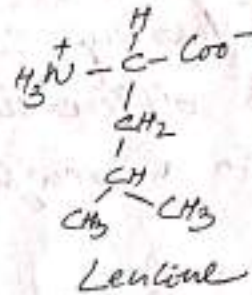 H
+
H₃N - C - COO⁻
CH₂
CH
CH₃ CH₃
Leucine